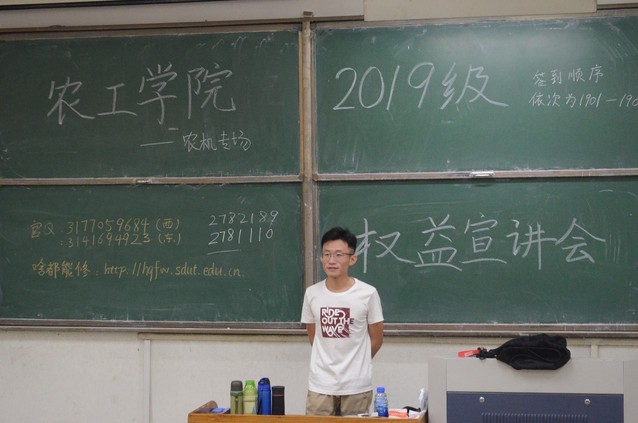 农工学院
——农机专场
2019级
签到顺序
依次为1901-190
官Q:3177059684 (西)
:3141694923 (东)
2782189
2781110
啥都能修:http://hqfw.sdut.edu.cn
权益宣讲会
RIDE
OUT THE
WAVE